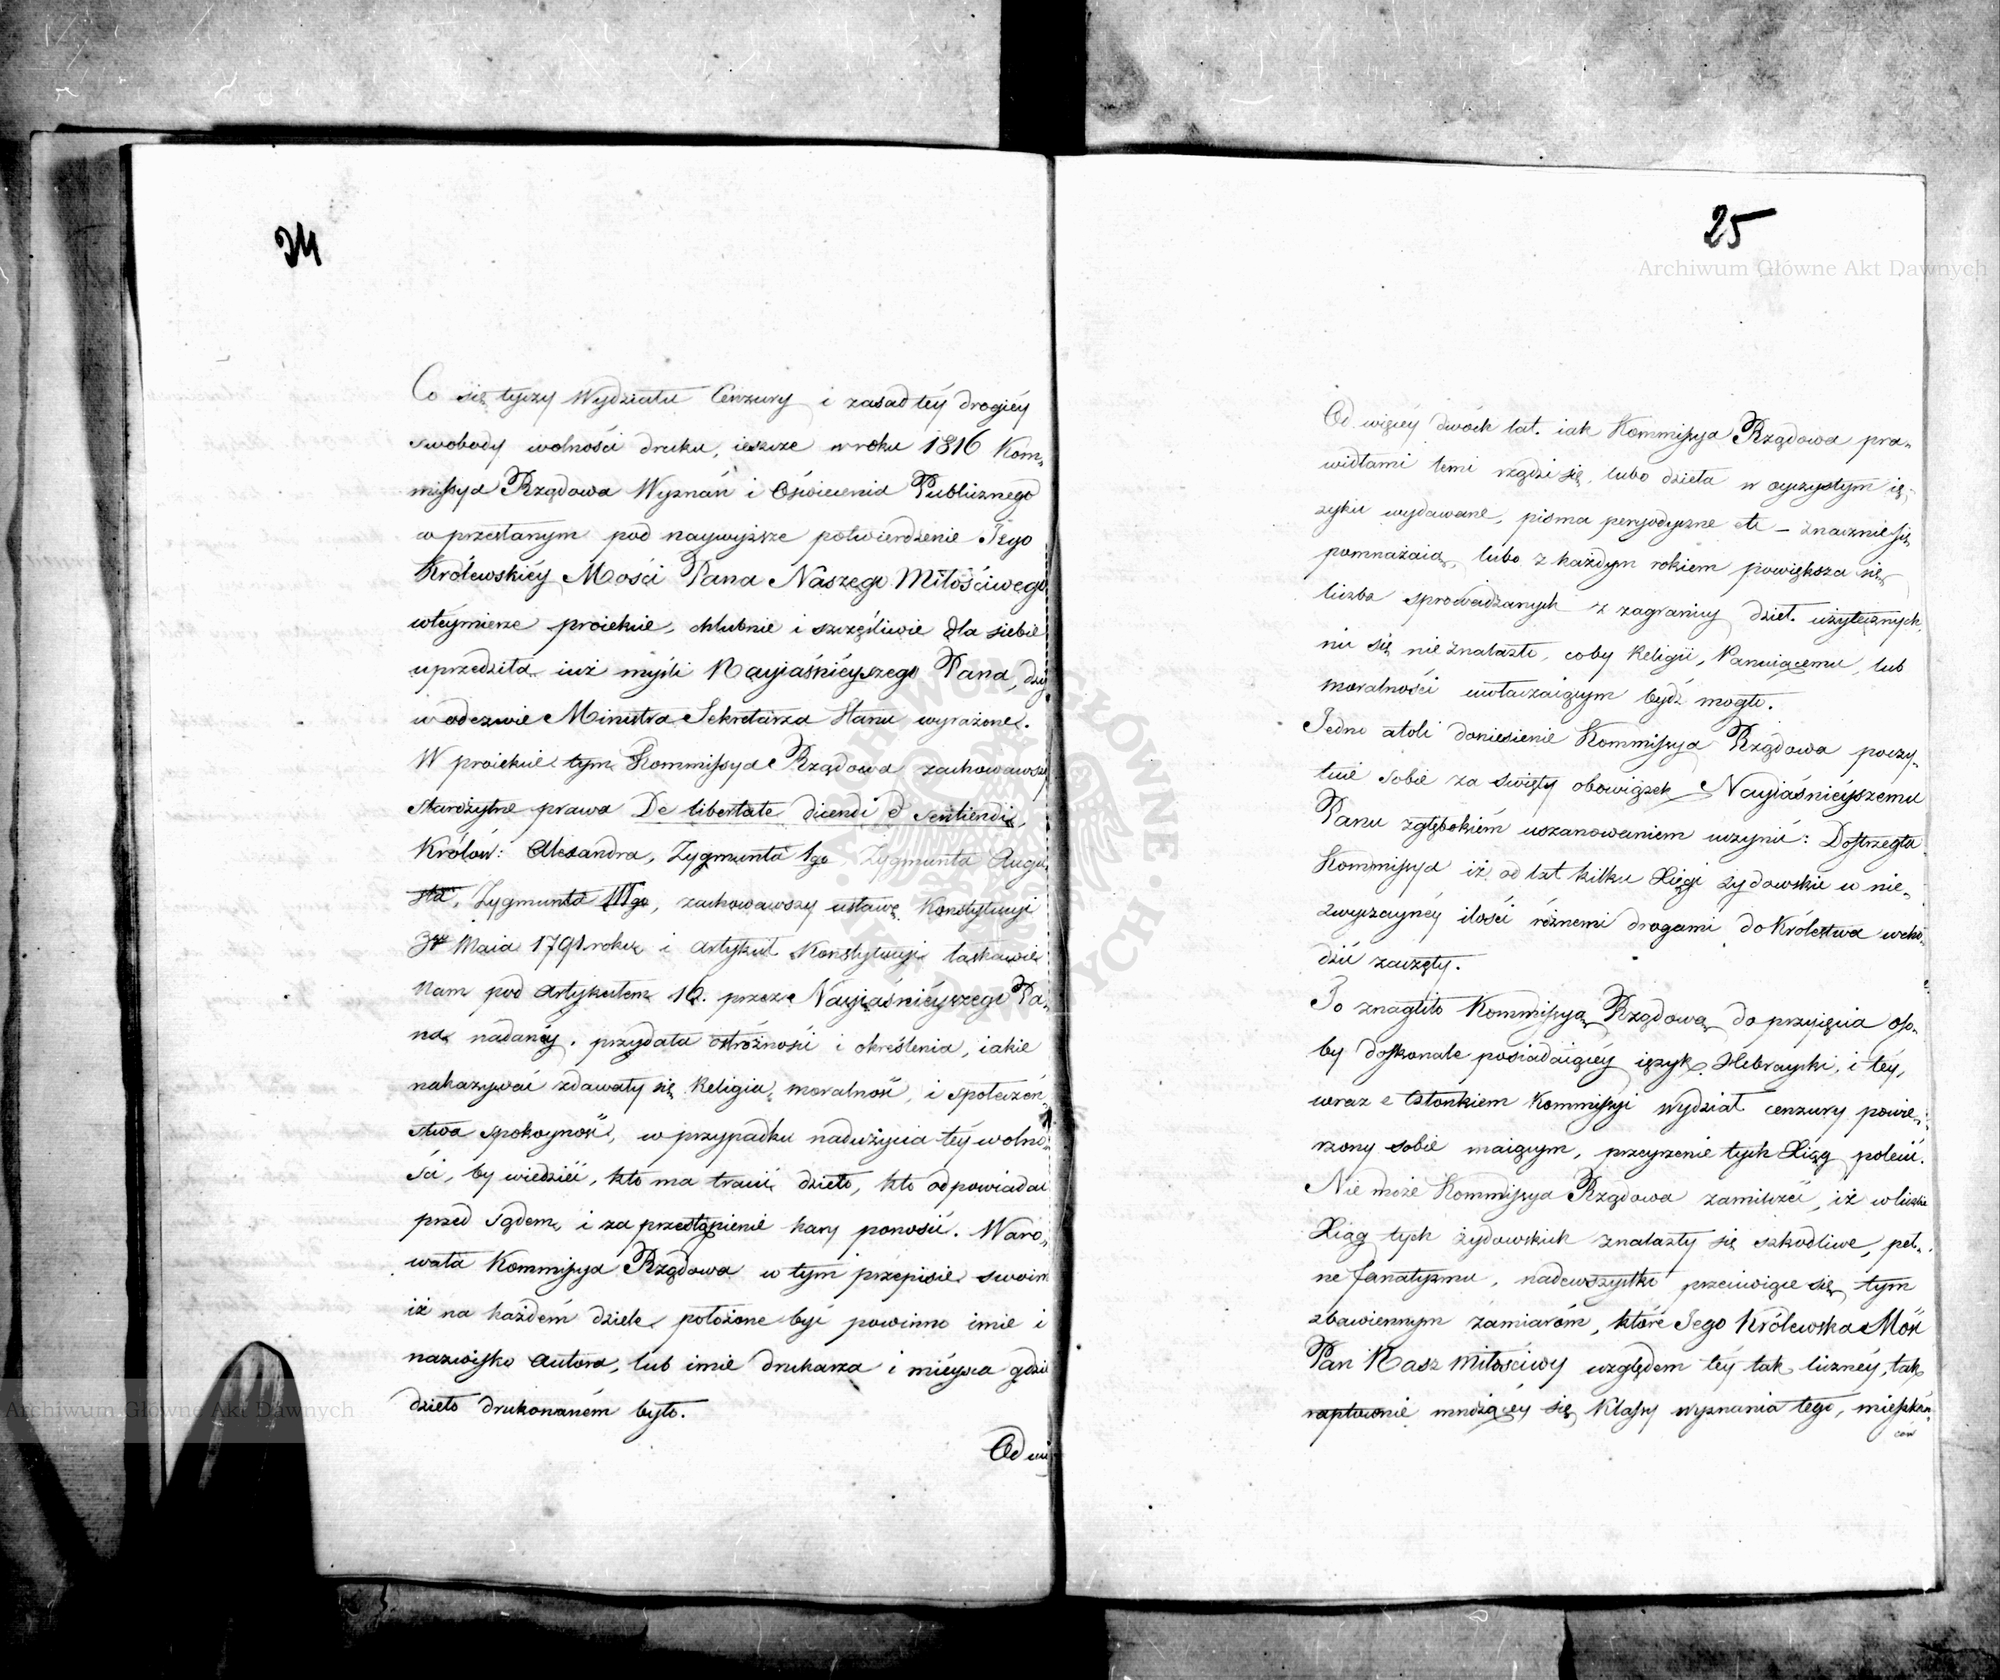 24
Co się tyczy Wydziału Cenzury i zasad téy drogiéy
swobody wolności druku, ieszcze w roku 1816 Kom-
missya Rządowa Wyznań i Oświecenia Publicznego
w przesłanym pod naywyższe potwierdzenie Jego
Królewskiéy Mości Pana Naszego Miłościwego
wtéymierze proiekcie, chlubnie i szczęśliwie dla siebie
uprzedziła iuż myśli Nayiaśnieyszego Pana, dziś
w odezwie Ministra Sekretarza Stanu wyrażone.
W proiekcie tym Kommissya Rządowa zachowawszy
starożytne prawa De libertate dicendi et sentiendi,
Królów: Alexandra, Zygmunta 1go Zygmunta Augu-
sta, Zygmunta IIIgo, zachowawszy ustawę Konstytucyi
3go Maia 1791 roku i Artykuł Konstytucyi łaskawie
Nam pod Artykułem 16. przez Nayiaśnieyszego Pa-
na nadanéy, przydała ostróżności i określenia, iakie
nakazywać zdawały się Religia, moralność, i społeczeń-
stwa spokoyność, w przypadku nadużycia téy wolno-
ści, by wiedzieć, kto ma tracić dzieło, kto odpowiadać
przed sądem, i za przestąpienie kary ponosić. Waro-
wała Kommissya Rządowa w tym przepisie swoim
iż na każdém dziele położone być powinno imie i
nazwisko Autora, lub imie drukarza i mieysca gdzie
dzieło drukowaném było.
Od wię
25
Archiwum Główne Akt Dawnych
Od więcéy dwóch lat. iak Kommissya Rządowa pra-
widłami temi rządzi się, lubo dzieła w oyczystym ię-
zyku wydawane, pisma peryodyczne etc – znacznie się
pomnażaią, lubo z każdym rokiem powiększa się
liczba sprowadzanych z zagranicy dzieł użytecznych,
nic się nie znalazło, coby Religii, Panuiącemu, lub
moralności uwłaczaiącym bydź mogło.
Jedno atoli doniesienie Kommissya Rządowa poczy-
tuie sobie za święty obowiązek Nayiaśnieyszemu
Panu zgłębokiém uszanowaniem uczynić: Dostrzegła
Kommissya iż od lat kilku Xięgi żydowskie w nie-
zwyczaynéy ilości różnemi drogami do Królestwa wcho-
dzić zaczęły.
To znagliło Kommissyą Rządową do przyięcia oso-
by doskonale posiadaiącéy ięzyk Hebrayski, i téy,
wraz z Członkiem Kommissyi wydział cenzury powie-
rzony sobie maiącym, przeyrzenie tych Xiąg polecić.
Nie może Kommissya Rządowa zamilczéć, iż w liczbie
Xiąg tych żydowskich znalazły się szkodliwe, peł-
ne fanatyzmu, nadewszystko przeciwiące się tym
zbawiennym zamiaróm, które Jego Królewska Mość
Pan Nasz Miłościwy względem téy tak licznéy, tak
raptownie mnożącéy się Klassy wyznania tego, mieszkań-
ców
Archiwum Główne Akt Dawnych
ARCHIWUM GŁÓWNE AKT DAWNYCH